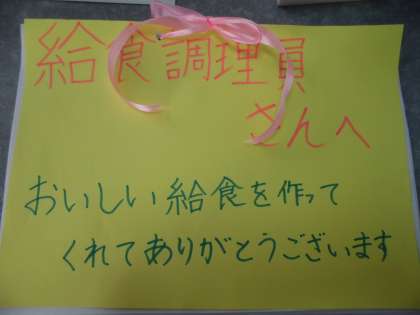 給食調理員
さんへ
おいしい給食を作って
くれてありがとうございます